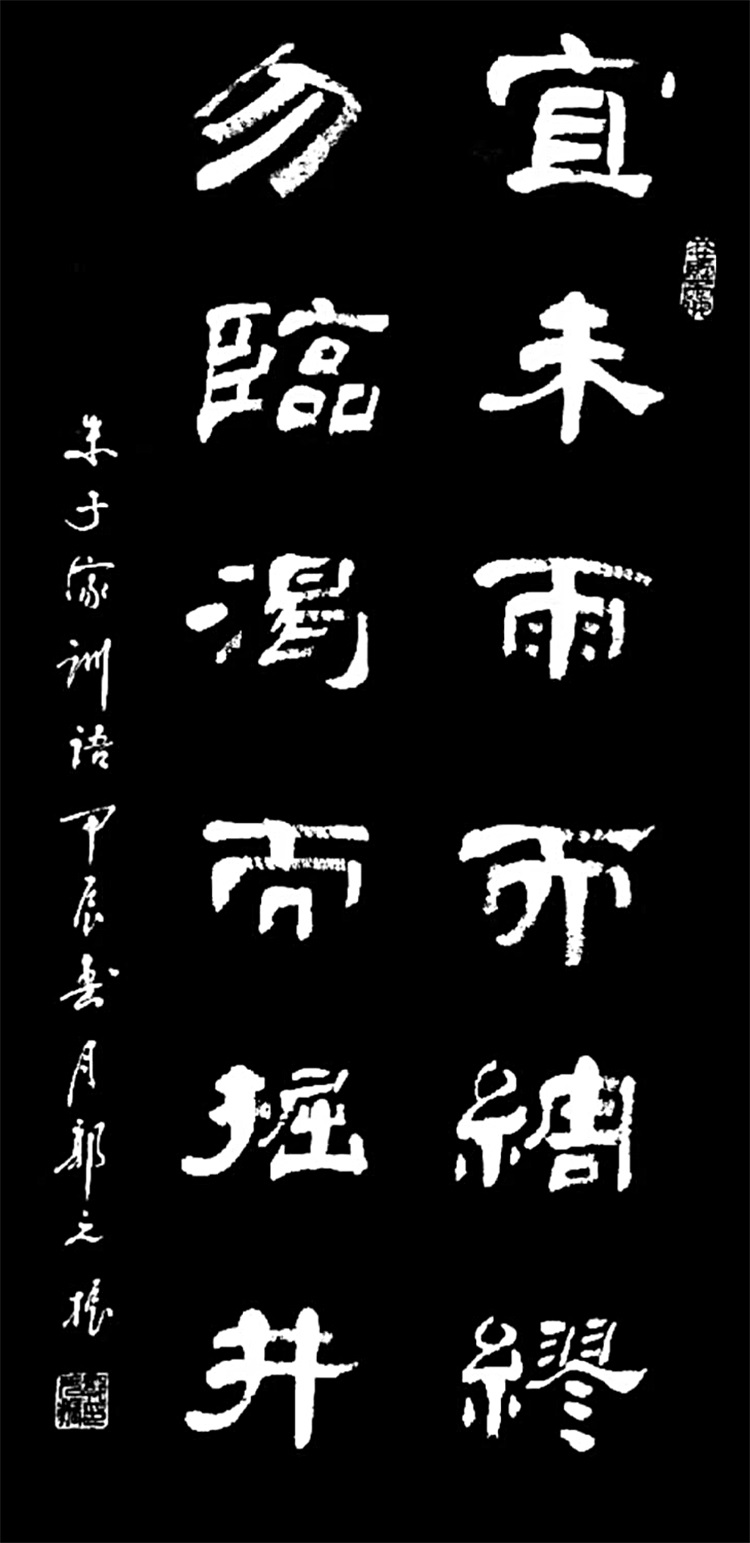 宜未雨而綢繆
勿臨渴而掘井
朱子家訓語甲辰春月郭之振